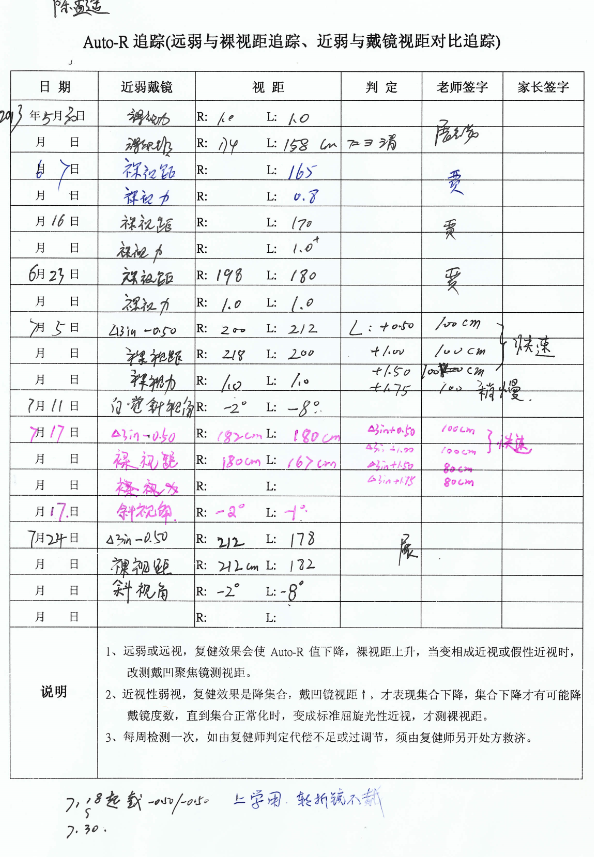 Auto-R 追踪(远弱与裸视距追踪、近弱与戴镜视距对比追踪)
日 期 近弱戴镜 视 距 判 定 老师签字 家长签字
2013年5月30日 裸视力 R: 1.0 L: 1.0
月 日 裸视距 R: 174 L: 158 cm
6月7日 裸视距 R: L: 165 贾
月 日 裸视力 R: L: 0.8
月16日 裸视距 R: L: 170 贾
月 日 裸视力 R: L: 1.0+
6月23日 裸视距 R: 198 L: 180 贾
月 日 裸视力 R: 1.0 L: 1.0
7月5日 Δ3in-0.50 R: 200 L: 212 L: +0.50 100cm 快速
月 日 裸视距 R: 218 L: 200 +1.00 100cm
月 日 裸视力 R: 1.0 L: 1.0 +1.50 100cm
+1.75 100 稍慢
7月11日 斜视角 R: -2° L: -8°
7月17日 Δ3in-0.50 R: 182cm L: 180cm Δ3in+0.50 100cm 快速
月 日 裸视距 R: 180cm L: 167cm Δ3in+1.00 100cm
Δ3in+1.50 80cm
月 日 裸视力 R: L: Δ3in+1.75 80cm
月17日 斜视角 R: -2° L: -1°
7月24日 Δ3in-0.50 R: 212 L: 178
月 日 裸视距 R: 212cm L: 182
月 日 斜视角 R: -2° L: -8°
月 日 R: L:
说明
1、远弱或远视，复健效果会使 Auto-R 值下降，裸视距上升，当变相成近视或假性近视时，
改测戴凹聚焦镜测视距。
2、近视性弱视，复健效果是降集合，戴凹镜视距↑，才表现集合下降，集合下降才有可能降
戴镜度数，直到集合正常化时，变成标准屈旋光性近视，才测裸视距。
3、每周检测一次，如由复健师判定代偿不足或过调节，须由复健师另开处方救济。
7.18起戴 -050/-050 上学用. 转折镜不戴
7.30.